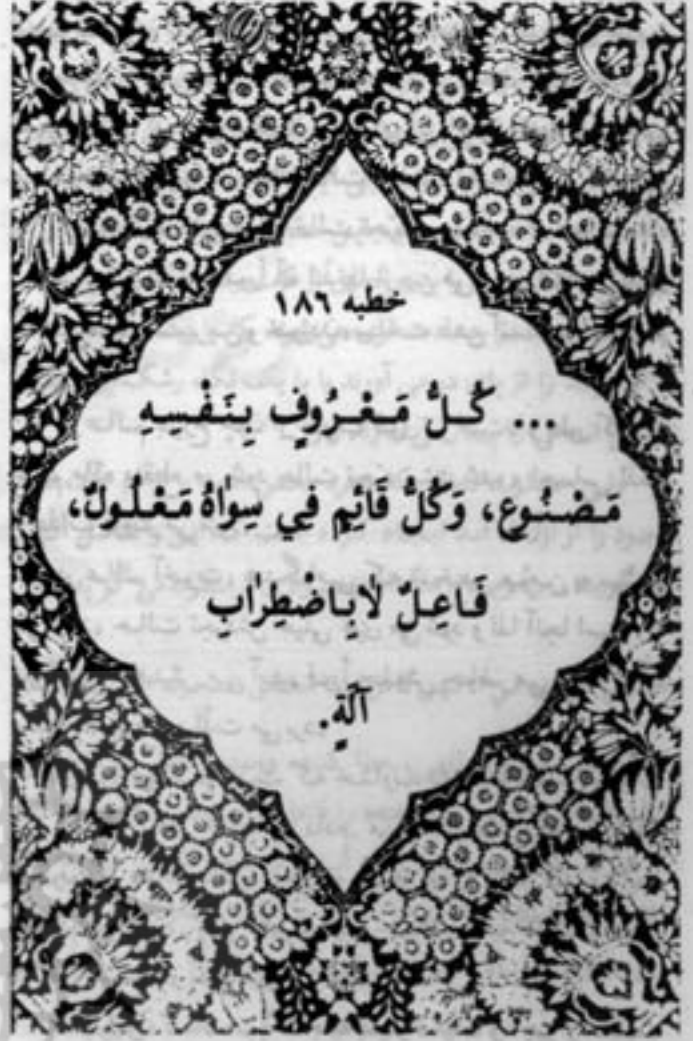 خطبه ۱۸۶
... كُلُّ مَعْرُوفٍ بِنَفْسِهِ
مَصْنُوعٍ، وَكُلُّ قَائِمٍ فِي سِوٰاهُ مَعْلُولٌ،
فَاعِلٌ لاٰبِاضْطِرٰابِ
آلَةٍ.